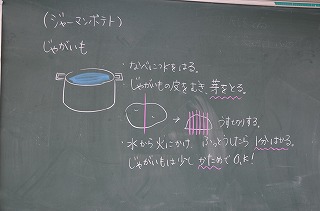 (ジャーマンポテト)
じゃがいも
・なべに水をはる。
・じゃがいもの皮をむき、芽をとる。
→ うすぎりする。
・水から火にかけ、ふっとうしたら 1分はかる。
じゃがいもは少し かためでO.K!